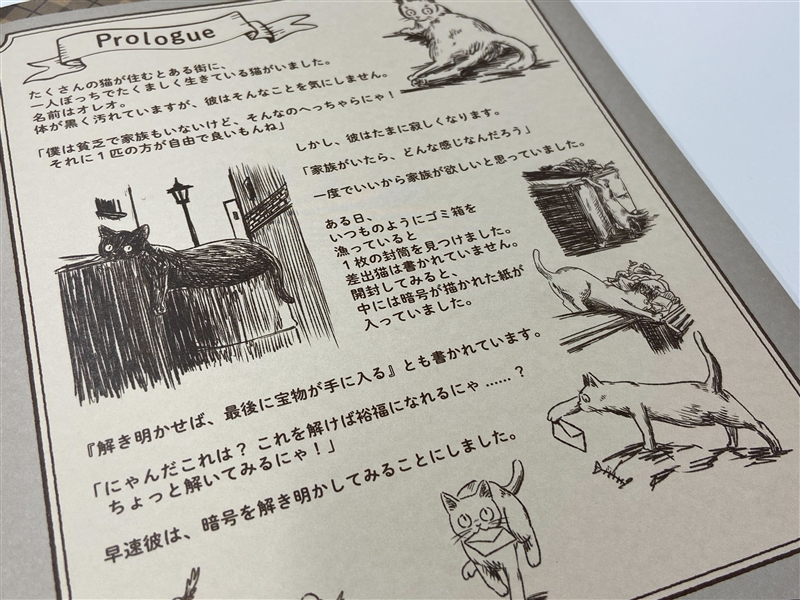 Prologue
たくさんの猫が住むとある街に、
一人ぼっちでたくましく生きている猫がいました。
名前はオレオ。
体が黒く汚れていますが、彼はそんなことを気にしません。
「僕は貧乏で家族もいないけど、そんなのへっちゃらにゃ！
それに１匹の方が自由で良いもんね」
しかし、彼はたまに寂しくなります。
「家族がいたら、どんな感じなんだろう」
一度でいいから家族が欲しいと思っていました。
ある日、
いつものようにゴミ箱を
漁っていると
１枚の封筒を見つけました。
差出猫は書かれていません。
開封してみると、
中には暗号が描かれた紙が
入っていました。
『解き明かせば、最後に宝物が手に入る』とも書かれています。
「にゃんだこれは？ これを解けば裕福になれるにゃ ……？
ちょっと解いてみるにゃ！」
早速彼は、暗号を解き明かしてみることにしました。